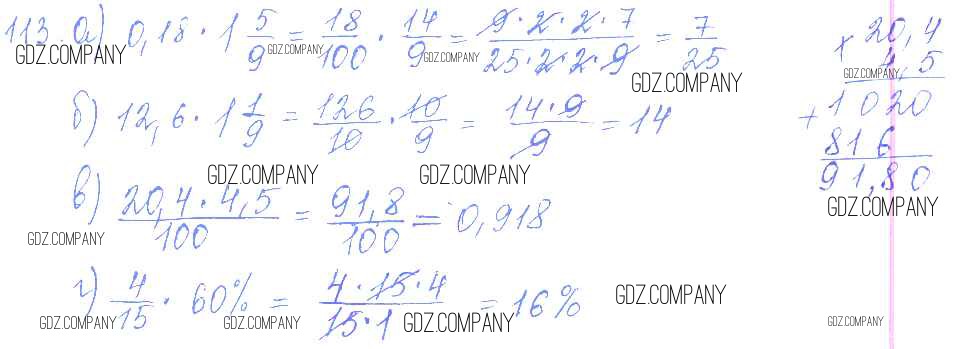 113. а) 0,18 · 1 5/9 = 18/100 · 14/9 = 9·2·2·7/25·2·2·9 = 7/25
б) 12,6 · 1 1/9 = 126/10 · 10/9 = 14·9/9 = 14
в) 20,4 · 4,5/100 = 91,8/100 = 0,918
г) 4/15 · 60% = 4·15·4/15·1 = 16%
× 20,4
4,5
+ 1020
816
91,80
GDZ.COMPANY
GDZ.COMPANY
GDZ.COMPANY
GDZ.COMPANY
GDZ.COMPANY
GDZ.COMPANY
GDZ.COMPANY
GDZ.COMPANY
GDZ.COMPANY
GDZ.COMPANY
GDZ.COMPANY
GDZ.COMPANY
GDZ.COMPANY